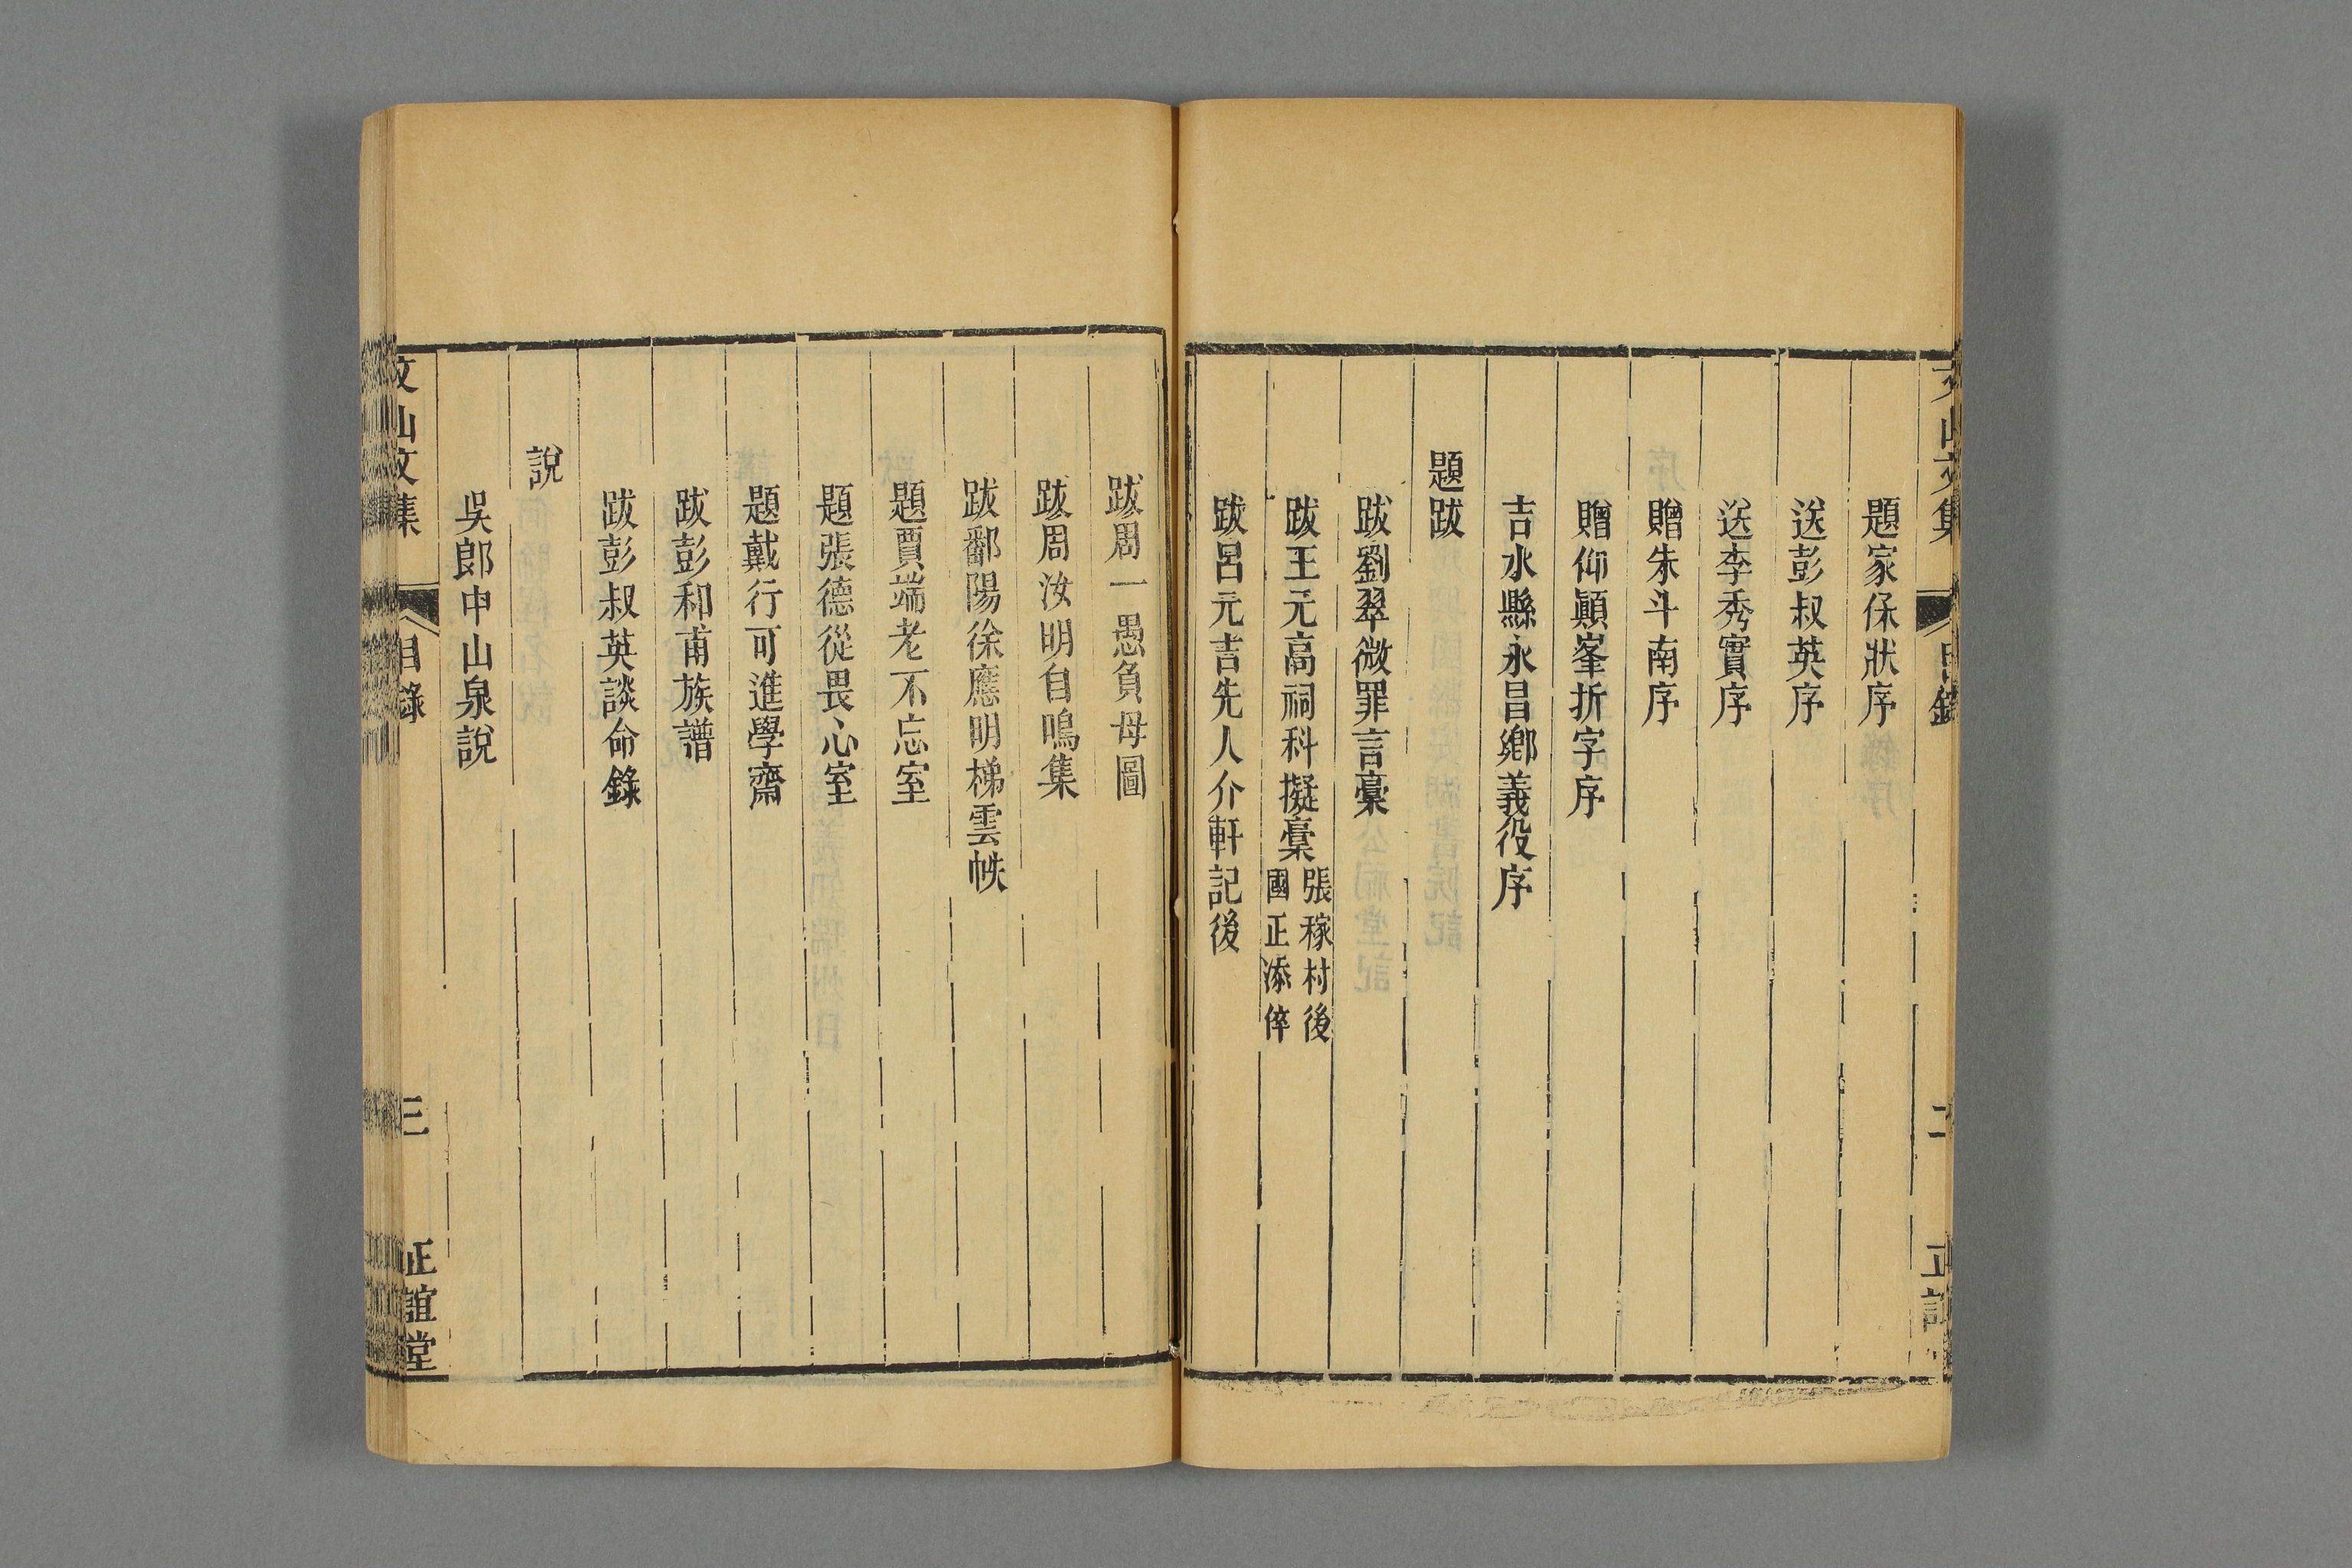 題家保狀序
送彭叔英序
送李秀實序
贈朱斗南序
贈仰顚峯折字序
吉水縣永昌鄉義役序
題跋
跋劉翠微罪言稾
跋王元高詞科擬稾張稼村後國正添倅
跋呂元吉先人介軒記後
跋周一愚負母圖
跋周汝明自鳴集
跋鄱陽徐應明梯雲帙
題賈端老不忘室
題張德從畏心室
題戴行可進學齋
跋彭和甫族譜
跋彭叔英談命錄
說
吳郎中山泉說
文山文集
目錄
三
正誼堂